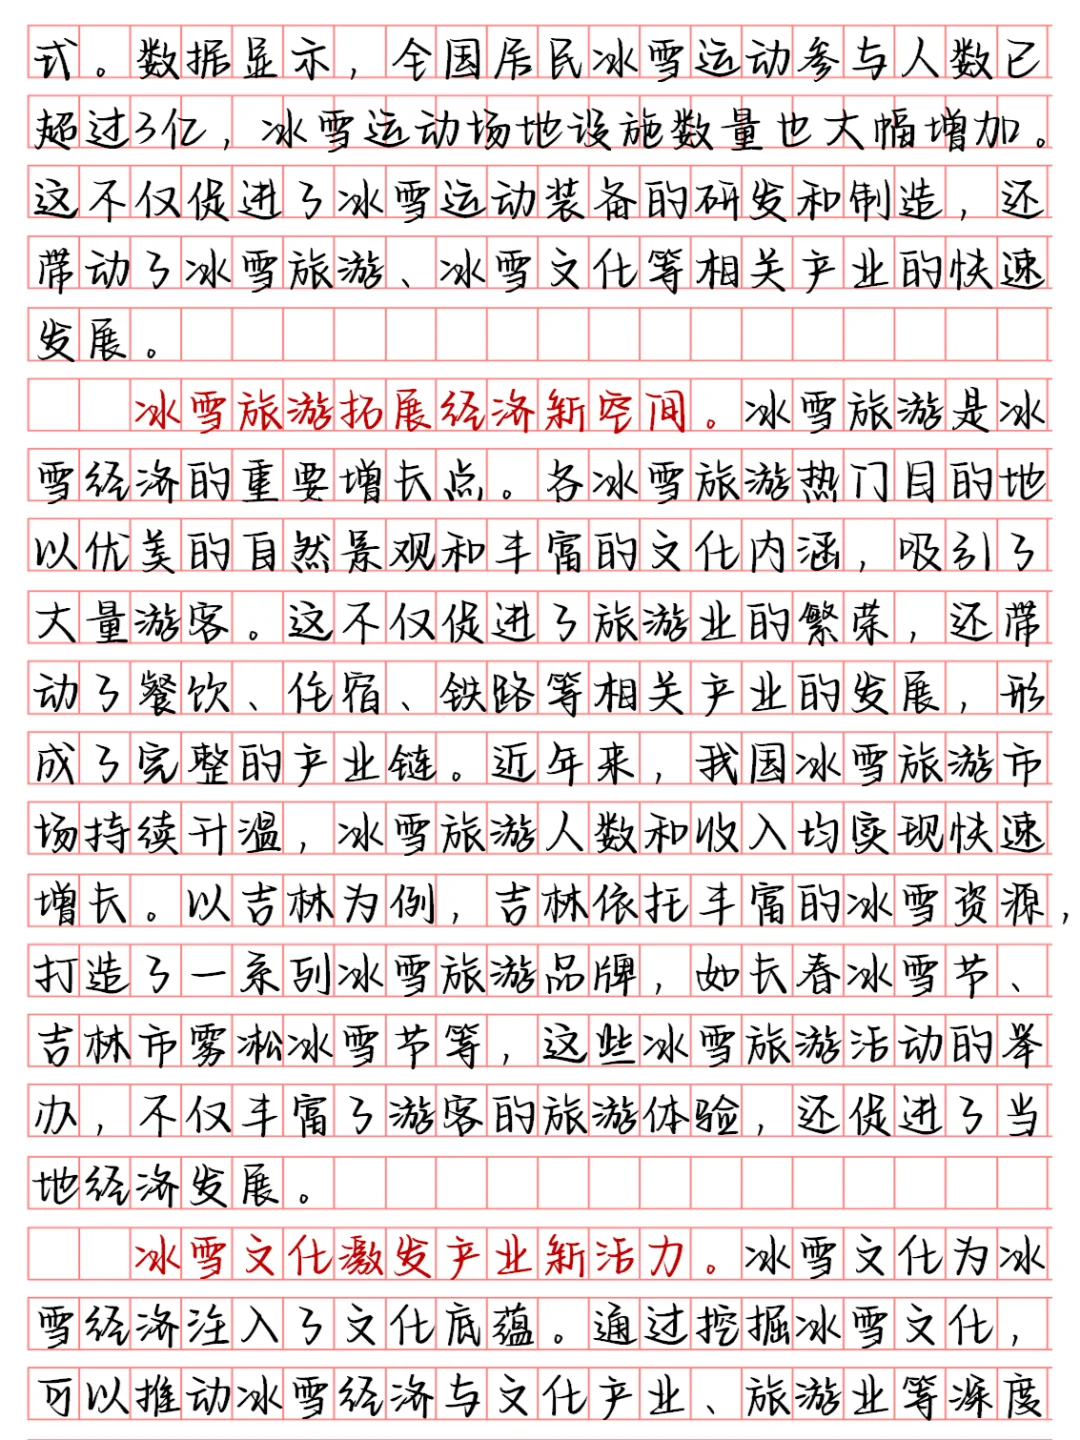 式。数据显示，全国居民冰雪运动参与人数已
超过3亿，冰雪运动场地设施数量也大幅增加。
这不仅促进了冰雪运动装备的研发和制造，还
带动了冰雪旅游、冰雪文化等相关产业的快速
发展。
冰雪旅游拓展经济新空间。冰雪旅游是冰
雪经济的重要增长点。各冰雪旅游热门目的地
以优美的自然景观和丰富的文化内涵，吸引了
大量游客。这不仅促进了旅游业的繁荣，还带
动了餐饮、住宿、铁路等相关产业的发展，形
成了完整的产业链。近年来，我国冰雪旅游市
场持续升温，冰雪旅游人数和收入均实现快速
增长。以吉林为例，吉林依托丰富的冰雪资源，
打造了一系列冰雪旅游品牌，如长春冰雪节、
吉林市雾凇冰雪节等，这些冰雪旅游活动的举
办，不仅丰富了游客的旅游体验，还促进了当
地经济发展。
冰雪文化激发产业新活力。冰雪文化为冰
雪经济注入了文化底蕴。通过挖掘冰雪文化，
可以推动冰雪经济与文化产业、旅游业等深度